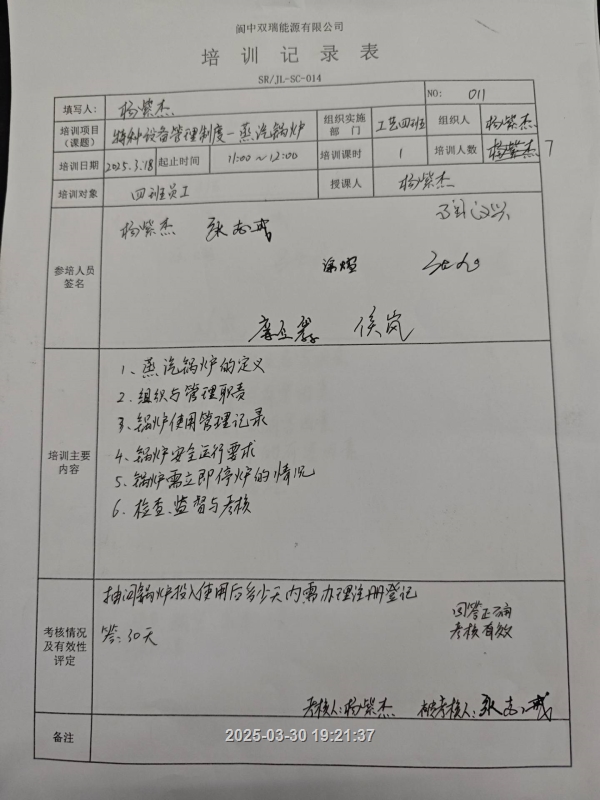 阆中双瑞能源有限公司
培训记录表
SR/JL-SC-014
填写人： 杨紫杰 NO: 011
培训项目（课题） 特种设备管理制度－蒸汽锅炉 组织实施部门 工艺四班 组织人 杨紫杰
培训日期 2025.3.18 起止时间 11:00～12:00 培训课时 1 培训人数 7
培训对象 四班员工 授课人 杨紫杰
参培人员签名
杨紫杰 张志成
侯岚
培训主要内容
1、蒸汽锅炉的定义
2、组织与管理职责
3、锅炉使用管理记录
4、锅炉安全运行要求
5、锅炉需立即停炉的情况
6、检查、监督与考核
考核情况及有效性评定
抽问锅炉投入使用后多少天内需办理注册登记
答：30天
回答正确
考核有效
考核人：杨紫杰 被考核人：张志成
备注
2025-03-30 19:21:37